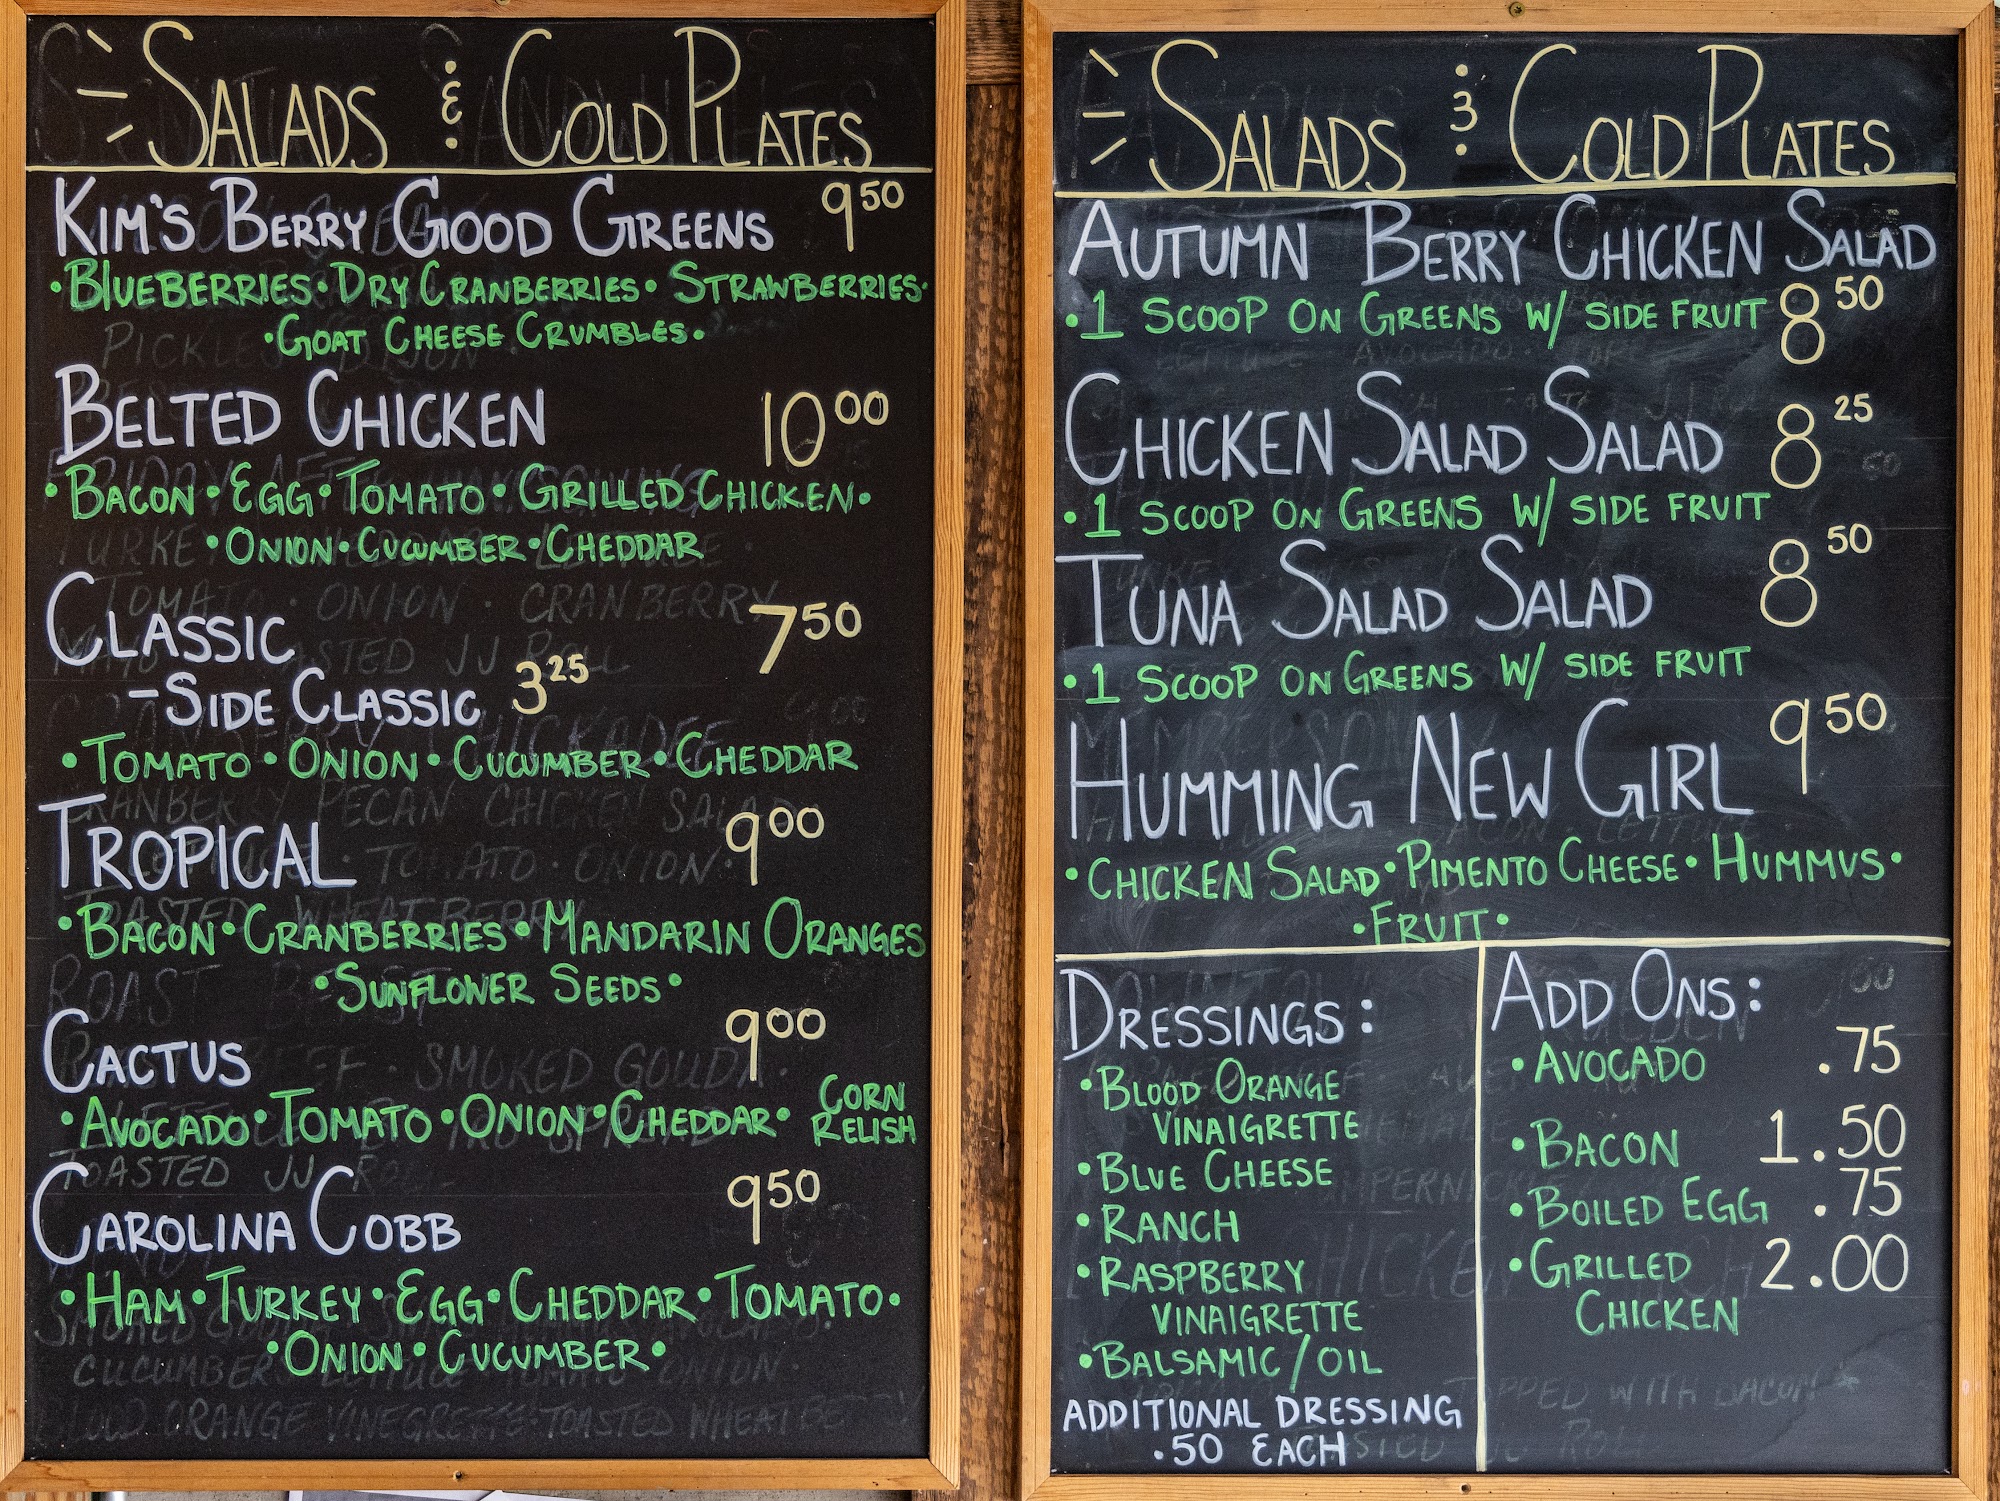 Salads & Cold Plates
Kim's Berry Good Greens 9 50
• Blueberries • Dry Cranberries • Strawberries •
• Goat Cheese Crumbles •
Belted Chicken 10 00
• Bacon • Egg • Tomato • Grilled Chicken •
• Onion • Cucumber • Cheddar
Classic 7 50
- Side Classic 3 25
• Tomato • Onion • Cucumber • Cheddar
Tropical 9 00
• Bacon • Cranberries • Mandarin Oranges
• Sunflower Seeds •
Cactus 9 00
• Avocado • Tomato • Onion • Cheddar • Corn
Relish
Carolina Cobb 9 50
• Ham • Turkey • Egg • Cheddar • Tomato •
• Onion • Cucumber •
Salads & Cold Plates
Autumn Berry Chicken Salad
• 1 Scoop on Greens w/ side fruit 8 50
Chicken Salad Salad 8 25
• 1 Scoop on Greens w/ side fruit
Tuna Salad Salad 8 50
• 1 Scoop on Greens w/ side fruit
Humming New Girl 9 50
• Chicken Salad • Pimento Cheese • Hummus •
• Fruit •
Dressings:
• Blood Orange
Vinaigrette
• Blue Cheese
• Ranch
• Raspberry
Vinaigrette
• Balsamic/oil
Additional Dressing
.50 each
Add Ons:
• Avocado .75
• Bacon 1.50
• Boiled Egg .75
• Grilled 2.00
Chicken